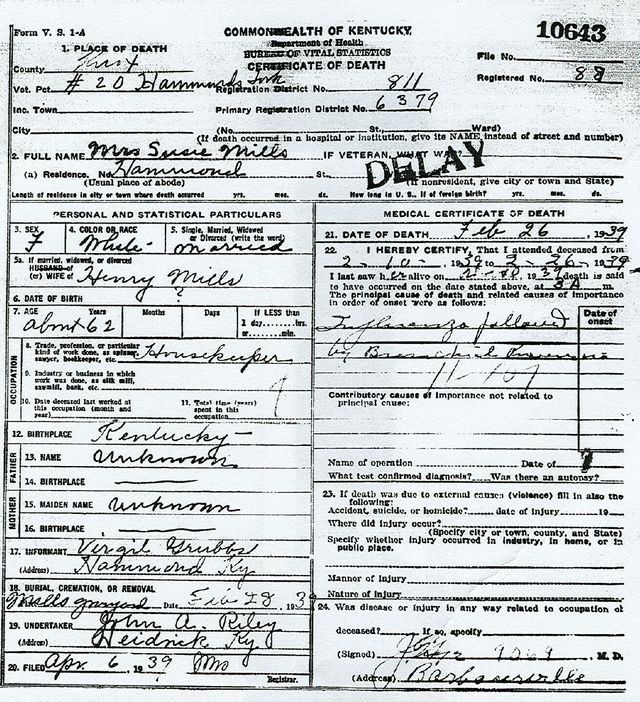 Form V. S. 1-A
COMMONWEALTH OF KENTUCKY
Department of Health
BUREAU OF VITAL STATISTICS
CERTIFICATE OF DEATH
10643
File No.
Registered No. 88
1. PLACE OF DEATH
County Knox
Vot. Pct. # 20 Hammonds Fork Registration District No. 811
Inc. Town Primary Registration District No. 6379
City (No. St., Ward)
(If death occurred in a hospital or institution, give its NAME instead of street and number)
2. FULL NAME Mrs Susie Mills IF VETERAN, WHAT WAR
DELAY
(a) Residence. No. Hammond St.
(Usual place of abode) (If nonresident, give city or town and State)
Length of residence in city or town where death occurred yrs. mos. ds. How long in U. S., if of foreign birth? yrs. mos. ds.
PERSONAL AND STATISTICAL PARTICULARS
3. SEX 4. COLOR OR RACE 5. Single, Married, Widowed
or Divorced (write the word)
F White Married
5a. If married, widowed, or divorced
HUSBAND of
(or) WIFE of Henry Mills
6. DATE OF BIRTH ?
7. AGE Years Months Days If LESS than
about 62 1 day......hrs.
or......min.
OCCUPATION
8. Trade, profession, or particular
kind of work done, as spinner,
sawyer, bookkeeper, etc. Housekeeper
9. Industry or business in which
work was done, as silk mill,
sawmill, bank, etc.
10. Date deceased last worked at
this occupation (month and
year)
11. Total time (years)
spent in this
occupation
12. BIRTHPLACE Kentucky
FATHER
13. NAME Unknown
14. BIRTHPLACE
MOTHER
15. MAIDEN NAME Unknown
16. BIRTHPLACE
17. INFORMANT Vergil Grubbs
(Address) Hammond Ky
18. BURIAL, CREMATION, OR REMOVAL
Mills graveyard Date Feb 28, 193
19. UNDERTAKER John A. Riley
(Address) Heidrick Ky
20. FILED Apr 6, 1939
Registrar.
MEDICAL CERTIFICATE OF DEATH
21. DATE OF DEATH Feb 26, 1939
22. I HEREBY CERTIFY, That I attended deceased from
2-10-, 1939 to 2-26-, 1939
I last saw her alive on 1939 death is said
to have occurred on the date stated above, at 3 A m.
The principal cause of death and related causes of importance
in order of onset were as follows:
Date of
onset
Influenza followed
by Bronchial Pneumonia
11-107
Contributory causes of importance not related to
principal cause:
Name of operation Date of
What test confirmed diagnosis? Was there an autopsy?
23. If death was due to external causes (violence) fill in also the
following:
Accident, suicide, or homicide? date of injury 19
Where did injury occur?
(Specify city or town, county, and State)
Specify whether injury occurred in industry, in home, or in
public place.
Manner of injury
Nature of injury
24. Was disease or injury in any way related to occupation of
deceased? If so, specify
(Signed) M. D.
(Address) Barbourville